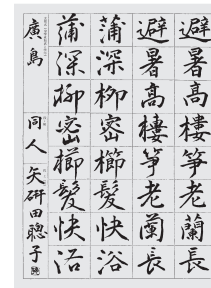 避暑高樓筝老蘭長
避暑高樓筝老蘭長
蒲深柳密櫛髮快浴
蒲深柳密櫛髮快浴
廣島 同人 矢研田聰子